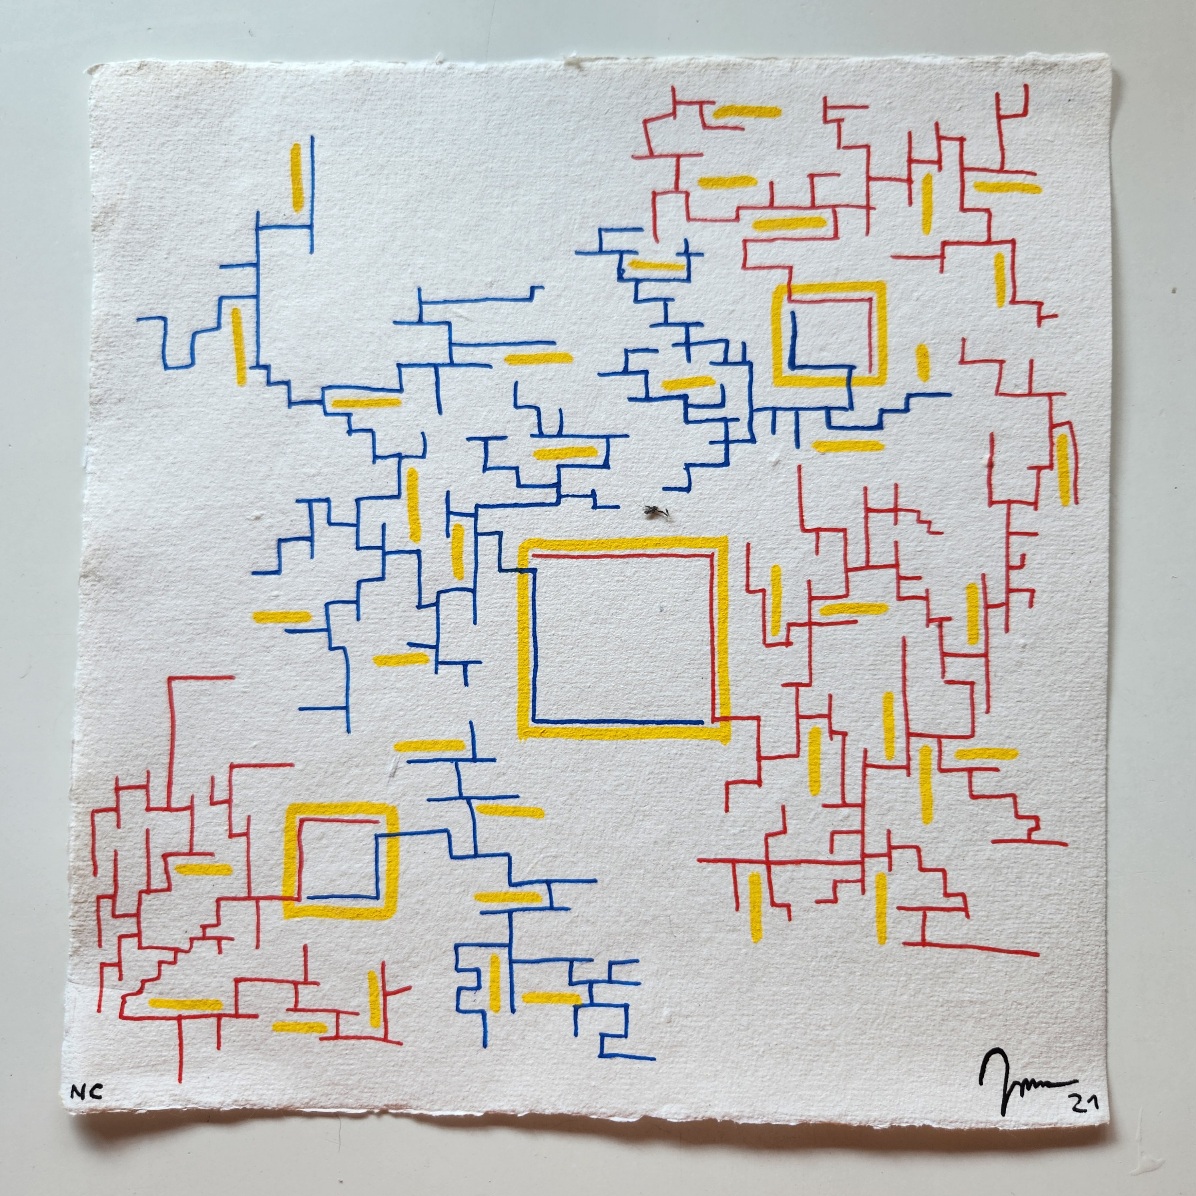 NC
21